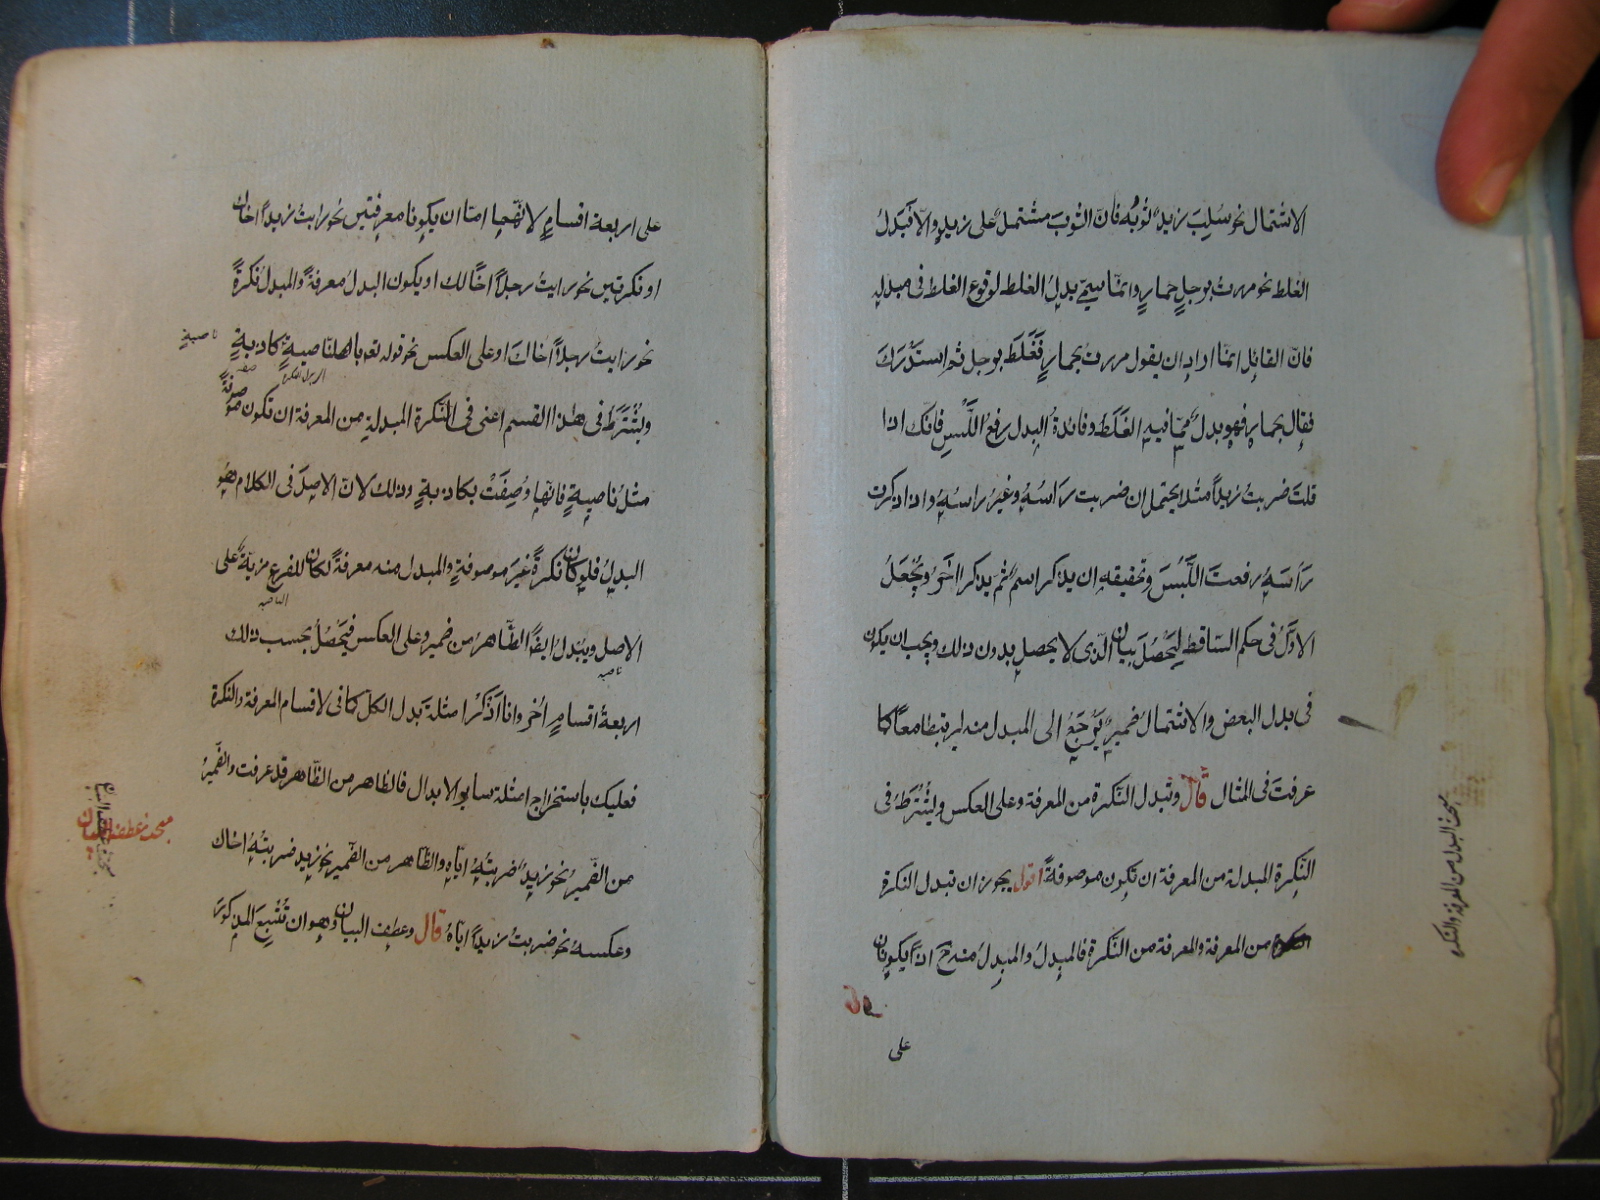 الاشتمال نحو سُلِبَ زيدٌ ثوبُه فانّ الثوبَ مشتملٌ على زيدٍ والّا فبَدَلُ
الغلط نحو مررتُ برجلٍ حمارٍ وانّما سمّي بدلُ الغلط لوقوع الغلط فى مبدله
فانّ القائل انّما اراد ان يقول مررتُ بحمارٍ فَغَلَطَ برجل ثم استَدْرَكَ
فقال بحمارٍ فهو بدلٌ ممّا فيه الغَلَط وفائدة البدل رفعُ اللَّبسِ فانّك اذا
قلتَ ضربتُ زيداً مثلا يحتمل ان ضربت رَاسَهُ وغيرَ راسَهُ واذا ذكرت
رَاسَهُ رفعتَ اللَّبْسَ وتحقيقه ان يذكر اسمٌ ثم يذكر اخَرُ ويُجْعَلُ
الاوّلُ فى حكم السّاقط ليَحْصُلَ بيان الّذى لا يحصل بدون ذلك ويجب ان يكون
فى بدل البعض والاشتمال ضميرٌ يَرْجَعُ الى المبدل منه ليرتبطا معاً كما
عرفتَ فى المثال قال وتبدل النّكرة من المعرفة وعلى العكس ويشْتَرَطُ فى
النّكرة المبدلة من المعرفة ان تكون موصوفةً اقول يجوز ان تبدل النكرة
من المعرفة والمعرفة من النّكرة فالمبدلُ والمبدلُ منه ح امّا يكونان
على
مبحث البدل من المعرفة والنكرة
على اربعة اقسامٍ لانّهما امّا ان يكونا معرفتين نحو رايتُ زيداً اخاك
او نكرتين نحو رايتُ رجلاً اخًا لك او يكون البدلُ معرفةً والمبدلُ نكرةً
نحو رايتُ رجلاً اخاكَ او على العكس نحو قوله تعو بالناصيةِ ناصيةٍ كاذبةٍ
ويُشْتَرَطُ فى هذا القسم اعنى فى النّكرة المبدلةِ من المعرفة ان تكون موصوفةً
مثلُ ناصيةٍ فانّها وُصِفَتْ بكاذبةٍ وذلك لانّ الاصلَ فى الكلام هُو
البدلُ فلو كان نكرةً غيرَ موصوفةٍ والمبدل منه معرفةً لكان للفرع مزيّةٌ على
الاصل ويُبْدَلُ ايضًا الظّاهرُ من ضمير وعلى العكس فيَحْصُلُ بحسب ذلك
اربعةُ اقسامٍ اُخَر وانا اَذْكُرُ امثلةَ بدل الكل كما فى لاقسام المعرفة والنكرة
فعليك باستخراج امثلة ساير الابدال فالظاهر من الظّاهر قد عرفت والضّميرُ
من الضّمير نحو زيدٌ ضربتُهُ ايّاه والظّاهر من الضّمير نحو زيد ضربتُهُ اخاك
وعكسه نحو ضربتُ زيداً ايّاهُ قال وعطف البيان وهو ان تُتْبِعَ المذكورَ
ناصيةٍ
صفة
الناصية
ناصية
مبحث عطف البيان